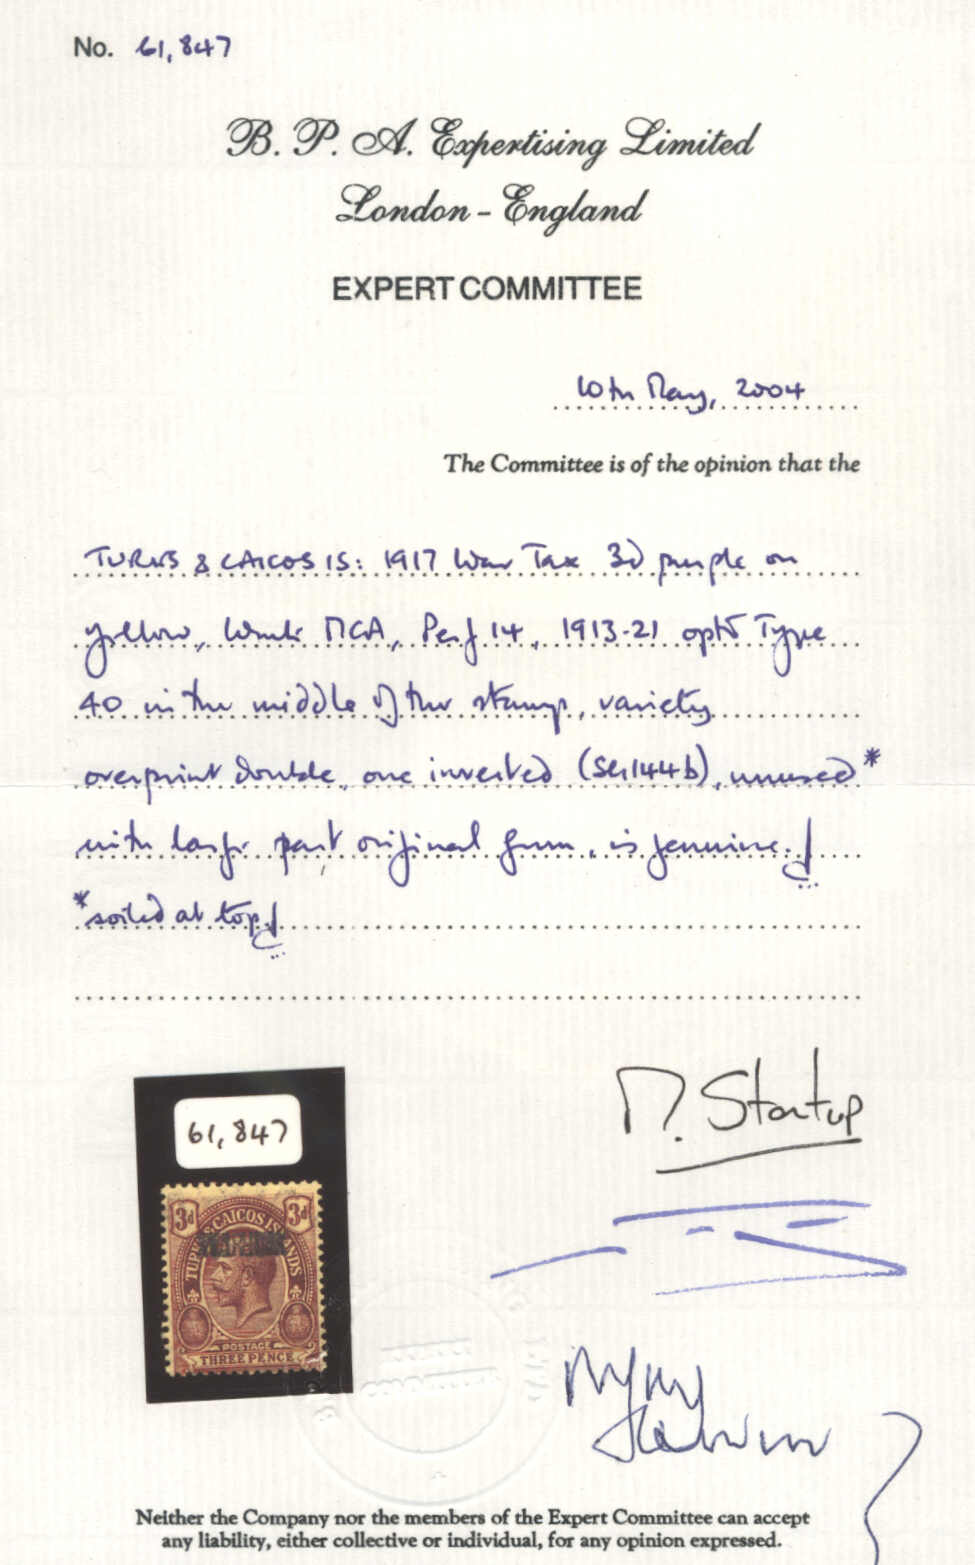 No. 61,847
B. P. A. Expertising Limited
London - England
EXPERT COMMITTEE
10th May, 2004
The Committee is of the opinion that the
TURKS & CAICOS IS: 1917 War Tax 3d purple on
yellow, Wmk MCA, Perf 14, 1913-21 optd Type
40 in the middle of the stamp, variety
overprint double, one inverted (SG144b), unused*
with large part original gum, is genuine.
*soiled at top
M. Startup
61,847
3d 3d
TURKS & CAICOS ISLANDS
POSTAGE
THREE PENCE
Neither the Company nor the members of the Expert Committee can accept
any liability, either collective or individual, for any opinion expressed.